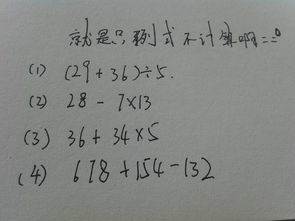 就是只列式不计算啊==。
(1) (29+36)÷5.
(2) 28-7×13
(3) 36+34×5
(4) 678+154-132